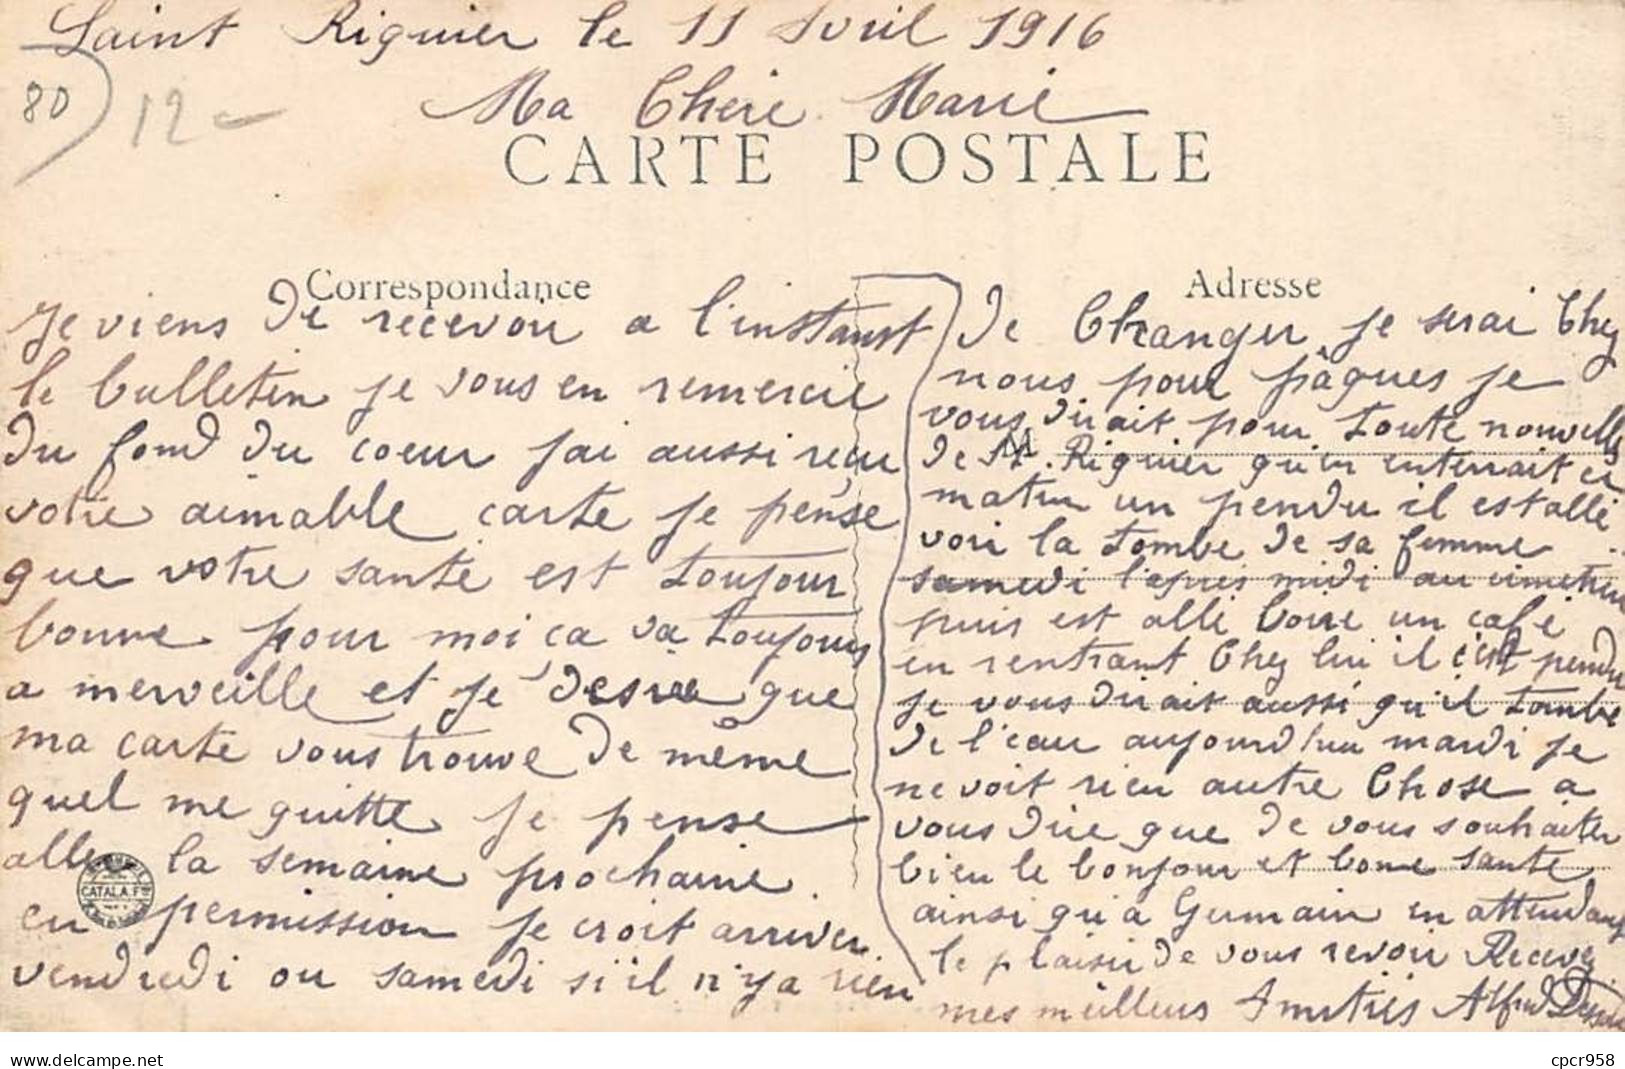 Saint Riquier le 11 Avril 1916
80 12
Ma Chere Marie
CARTE POSTALE
Correspondance
Je viens de recevoir a l'instant
le bulletin je vous en remercie
du fond du coeur jai aussi reçu
votre aimable carte je pense
que votre santé est toujour
bonne pour moi ca va toujours
a merveille et je desire que
ma carte vous trouve de même
quel me quitte je pense
aller la semaine prochaine
CATALA F
en permission je croit arriver
vendredi ou samedi si il n'y a rien
Adresse
de Changer je serai Chez
nous pour pâques je
vous dirait pour toute nouvelle
M
de St Riquier qu'en enterrait ce
matin un pendu il est allé
voir la tombe de sa femme
samedi l'apres midi au cimetiere
puis est allé boire un café
en rentrant Chez lui il c'est pendu
je vous dirait aussi qu'il tombe
de l'eau aujourd'hui mardi je
ne voit rien autre Chose a
vous dire que de vous souhaiter
bien le bonjour et bone santé
ainsi qu'a Germain en attendant
le plaisir de vous revoir Recevez
mes meilleurs Amitiés Alfred
cpcr958